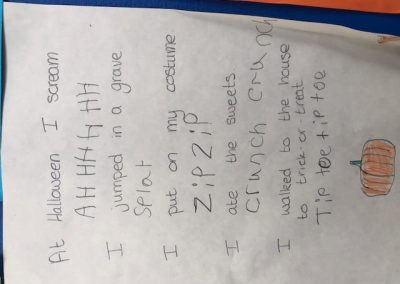 At Halloween I scream
AHHHHHH
I jumped in a grave
Splat
I put on my costume
ZipZip
I ate the sweets
Crunch crunch
I walked to the house
to trick or treat
Tip toe tip toe